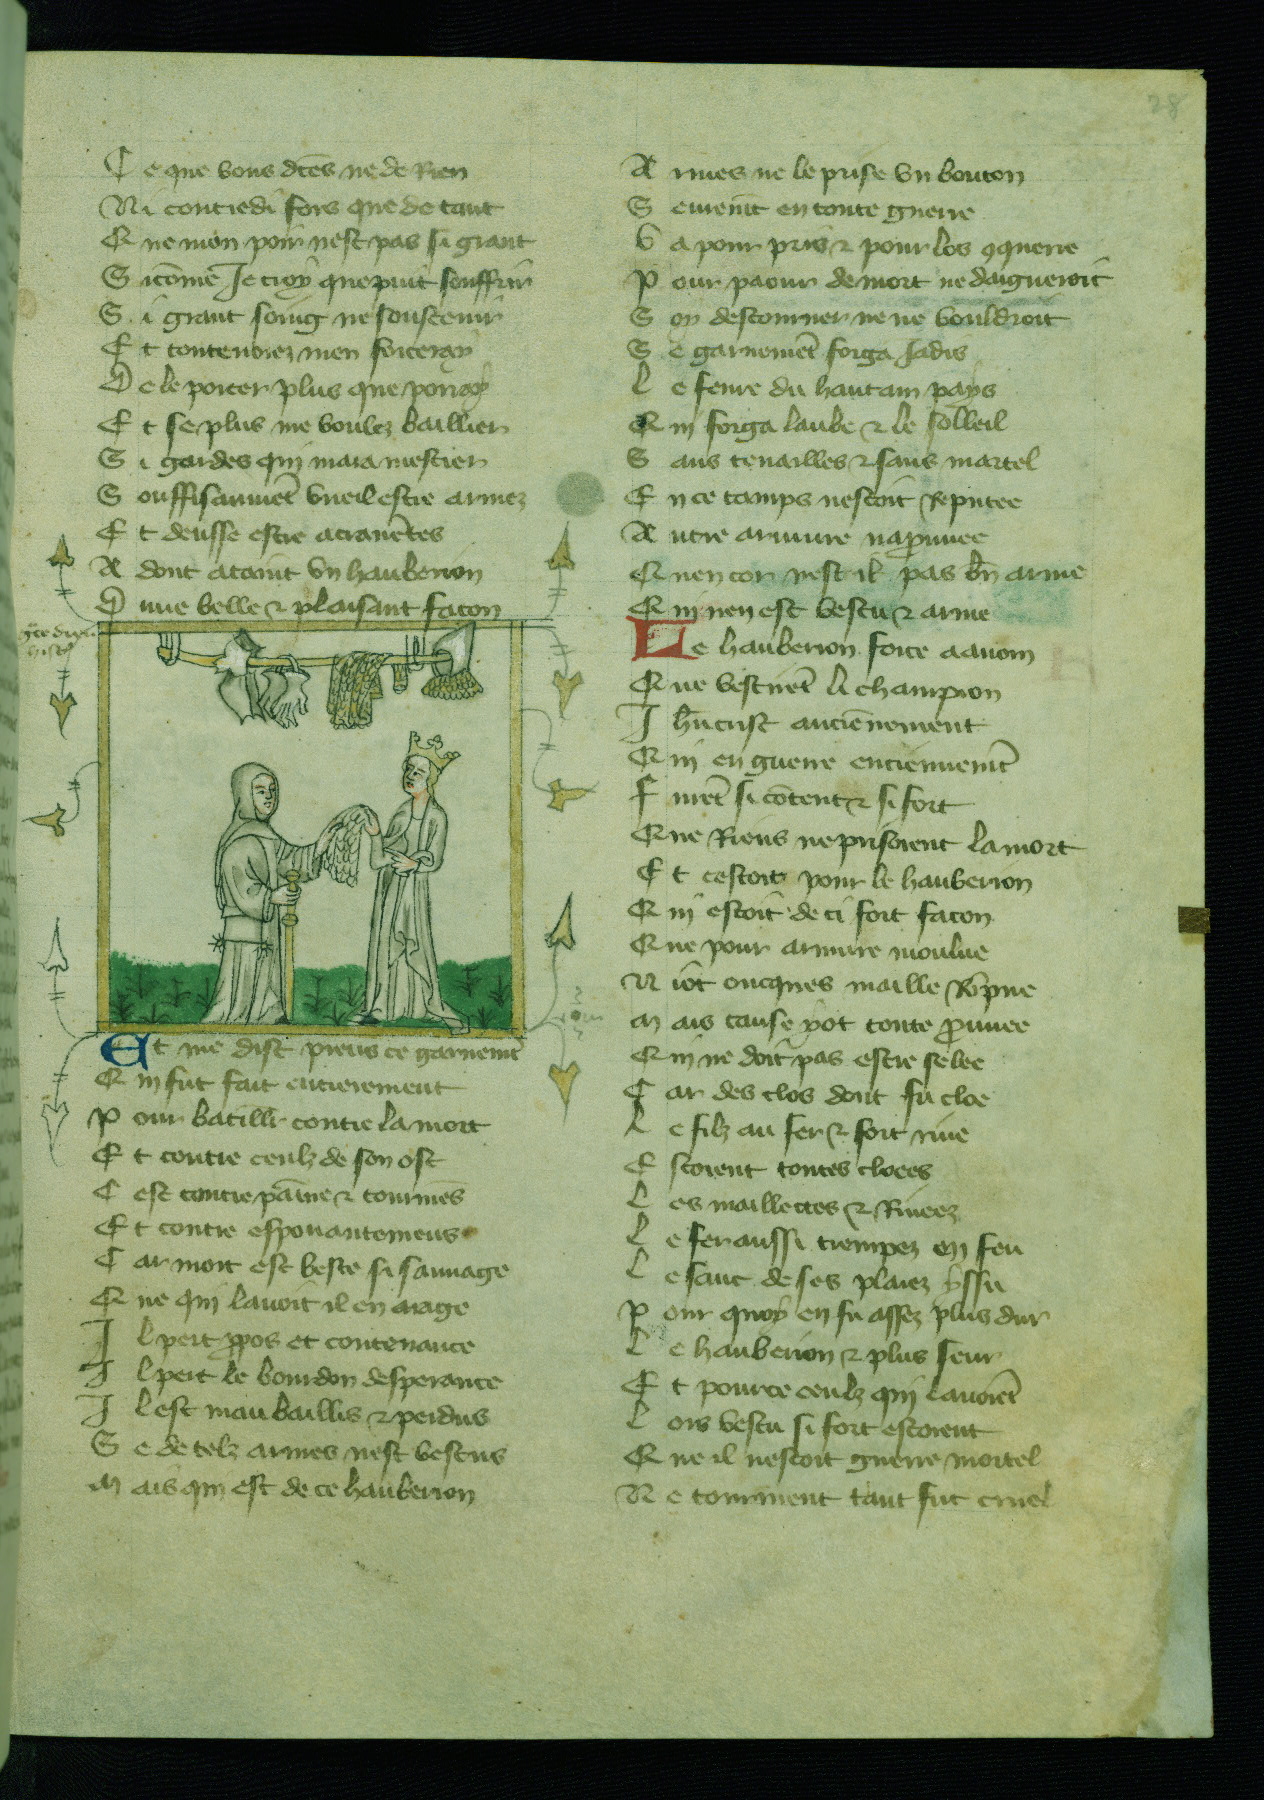 28
Ce que vous dctēs ne de Rien
Ni contredi fors que de tant
Q ne mon poir nest pas si grant
Sicōmē Je croy que puit souffrir
Si grant soing ne soustenir
Et tontenviez men forceray
De le porter plus que porray
Et se plus me voulez baillier
Si gardes qui mara mestier
Souffisaument̄ vueil estre armez
Et deusse estre acravētes
A dont ataint vn hauberion
D une belle & plaisant facon
Et me dist prens ce garnemt̄
Qui fut fait entierement
Pour batillr̄ contre la mort
Et contre ceulz de son ost
Cest contre paīne & tormēs
Et contre espouantemens
Car mort est beste si sauuage
Que qui lauoit il en arage
Il pert ꝓpos et contenance
Il pert le bourdon desperance
Il est mau baillis & perdus
Se de telz armes nest vestus
Mais qui est de ce hauberion
Armes ne le prise vn bouton
Seurement en toute guerre
Va pour pris & pour los ꝯquerre
Pour paour de mort ne daigneroit
Soy destourner ne ne vouldroit
Se garnemēt forga Jadis
Le feure du hautain pays
Qui forga laube & le solleil
Sans tenailles & sans martel
En ce tamps nestoit Reputee
Autre armure naꝓuuee
Quencor nest il pas bn̄ arme
Qui nen est vestu & arme
Le hauberion force a a nom
Que vestirēt li champion
Jhūcrist anciēnement
Qui en guerre entieuuemt̄
Furēt si cōtent & si fort
Que Riens ne prisoient la mort
Et cestoit pour le hauberion
Qui estoit de ci fort facon
Que pour armure moulue
Niōt oncques maille Rōpue
Mais cause yot toute ꝓuuee
Qui ne doit pas estre selee
Car des clos dont fu cloe
Le filz au fer & fort riue
Estoient toutes cloees
Les maillectes & Riueez
Le fer aussi trempez en feu
Le sanc de ses plaiez yssu
Pour quoy en fu assez plus dur
Le hauberion & plus seur
Et pource ceulz qui lauoiēt
Lors vestu si fort estoient
Que il nestoit guerre mortel
Ne tourment tant fut cruel